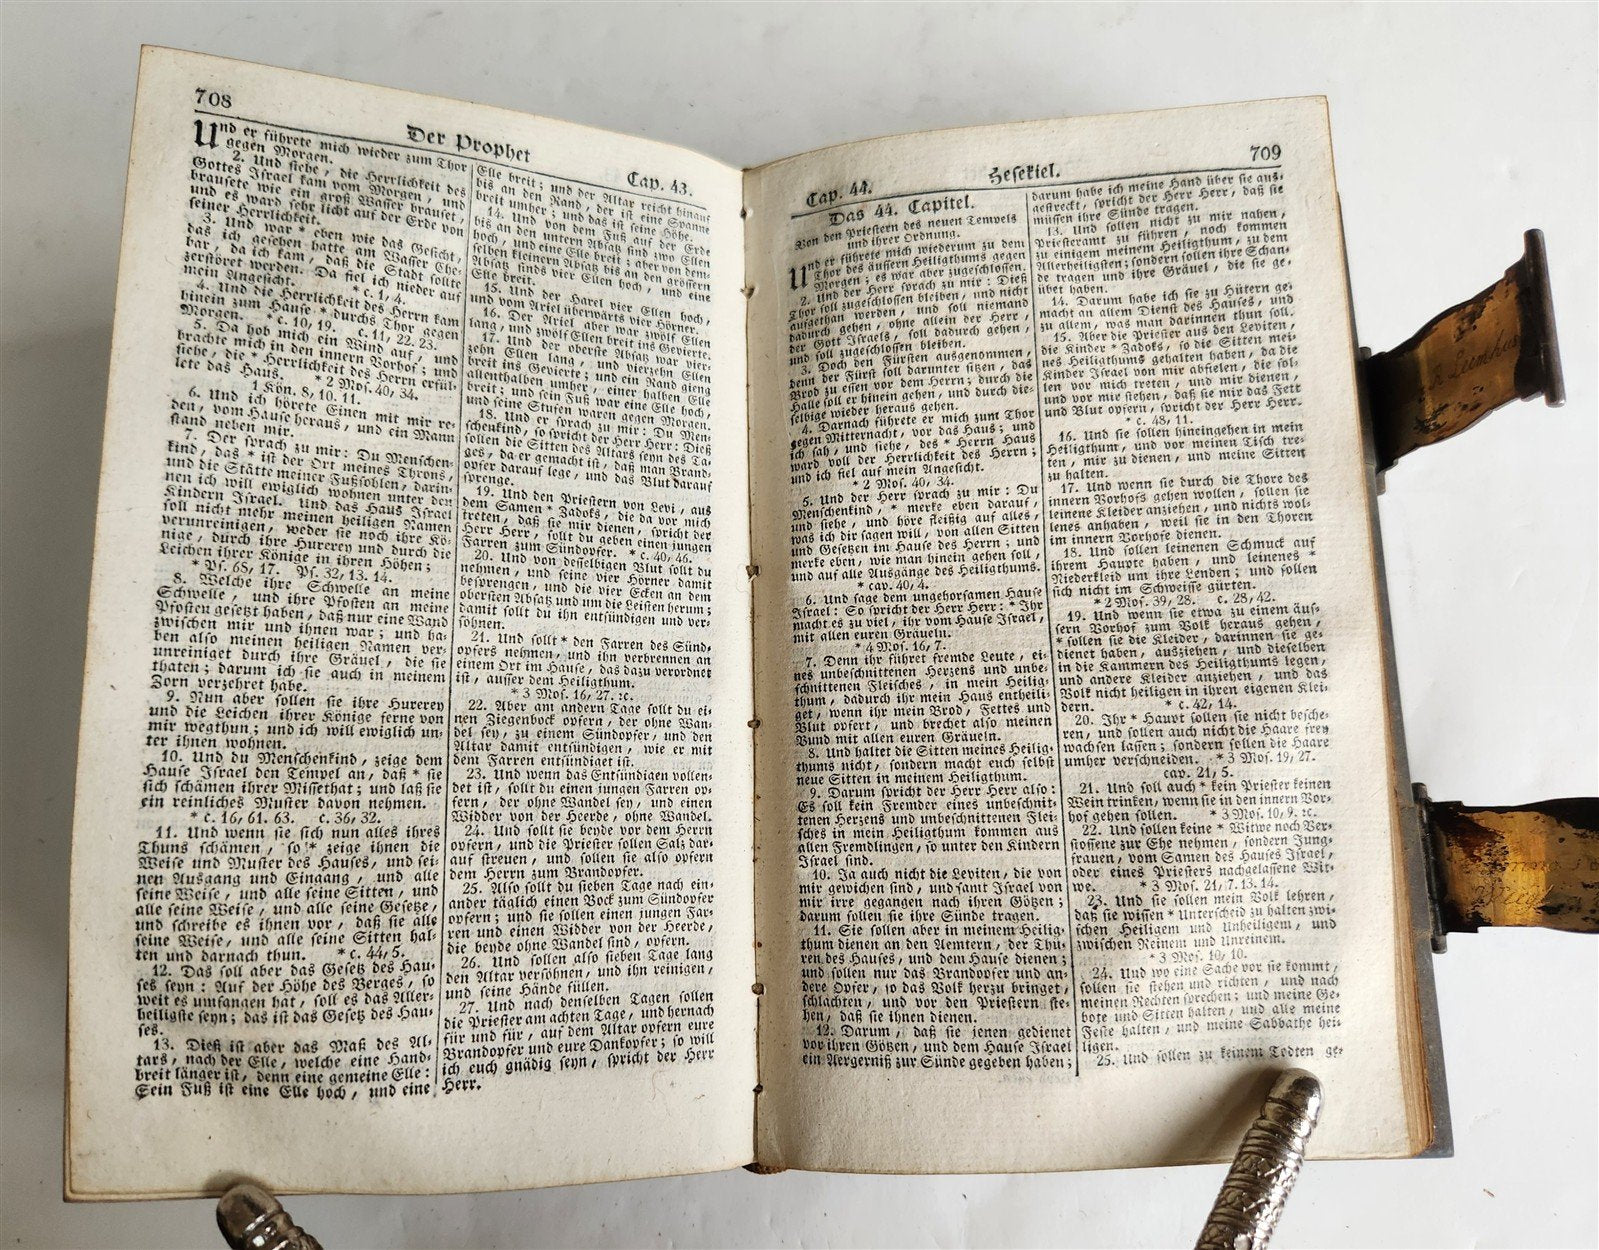 708
Der Prophet
Cap. 43.
Und er führete mich wieder zum Thor
gegen Morgen.
2. Und siehe, die Herrlichkeit des
Gottes Israel kam vom Morgen, und
brausete wie ein groß Wasser brauset,
und es ward sehr licht auf der Erde von
seiner Herrlichkeit.
3. Und war * eben wie das Gesicht,
das ich gesehen hatte am Wasser Che-
bar, da ich kam, daß die Stadt sollte
zerstöret werden. Da fiel ich nieder auf
mein Angesicht. * c. 1, 4.
4. Und die Herrlichkeit des Herrn kam
hinein zum Hause * durchs Thor gegen
Morgen. * c. 10, 19. c. 11, 22. 23.
5. Da hob mich ein Wind auf, und
brachte mich in den innern Vorhof; und
siehe, die * Herrlichkeit des Herrn erfül-
lete das Haus. * 2 Mos. 40, 34.
1 Kön. 8, 10. 11.
6. Und ich hörete Einen mit mir re-
den, vom Hause heraus, und ein Mann
stand neben mir.
7. Der sprach zu mir: Du Menschen-
kind, das * ist der Ort meines Throns,
und die Stätte meiner Fußsohlen, darin-
nen ich will ewiglich wohnen unter den
Kindern Israel. Und das Haus Israel
soll nicht mehr meinen heiligen Namen
verunreinigen, weder sie noch ihre Kö-
nige, durch ihre Hurerey und durch die
Leichen ihrer Könige in ihren Höhen;
* Ps. 68, 17. Ps. 32, 13. 14.
8. Welche ihre Schwelle an meine
Schwelle, und ihre Pfosten an meine
Pfosten gesetzt haben, daß nur eine Wand
zwischen mir und ihnen war; und ha-
ben also meinen heiligen Namen ver-
unreiniget durch ihre Gräuel, die sie
thaten; darum ich sie auch in meinem
Zorn verzehret habe.
9. Nun aber sollen sie ihre Hurerey
und die Leichen ihrer Könige ferne von
mir wegthun; und ich will ewiglich un-
ter ihnen wohnen.
10. Und du Menschenkind, zeige dem
Hause Israel den Tempel an, daß * sie
sich schämen ihrer Missethat; und laß sie
ein reinliches Muster davon nehmen.
* c. 16, 61. 63. c. 36, 32.
11. Und wenn sie sich nun alles ihres
Thuns schämen, so * zeige ihnen die
Weise und Muster des Hauses, und sei-
nen Ausgang und Eingang, und alle
seine Weise, und alle seine Sitten, und
alle seine Weise, und alle seine Gesetze,
und schreibe es ihnen vor, daß sie alle
seine Weise, und alle seine Sitten hal-
ten und darnach thun. * c. 44, 5.
12. Das soll aber das Gesetz des Hau-
ses seyn: Auf der Höhe des Berges, so
weit es umfangen hat, soll es das Aller-
heiligste seyn; das ist das Gesetz des Hau-
ses.
13. Dieß ist aber das Maß des Al-
tars, nach der Elle, welche eine Hand-
breit länger ist, denn eine gemeine Elle:
Sein Fuß ist eine Elle hoch, und eine
Elle breit; und der Altar reicht hinauf
bis an den Rand, der ist eine Spanne
breit umher; und das ist seine Höhe.
14. Und von dem Fuß auf der Erde
bis an den untern Absatz sind zwo Ellen
hoch, und eine Elle breit; aber von dem-
selben kleinern Absatz bis an den grössern
Absatz sinds vier Ellen hoch, und eine
Elle breit.
15. Und der Harel vier Ellen hoch,
und vom Ariel überwärts vier Hörner.
16. Der Ariel aber war zwölf Ellen
lang, und zwölf Ellen breit ins Gevierte.
17. Und der oberste Absatz war vier-
zehn Ellen lang, und vierzehn Ellen
breit ins Gevierte; und ein Rand gieng
allenthalben umher, einer halben Elle
breit; und sein Fuß war eine Elle hoch,
und seine Stufen waren gegen Morgen.
18. Und er sprach zu mir: Du Men-
schenkind, so spricht der Herr Herr: Dieß
sollen die Sitten des Altars seyn des Ta-
ges, da er gemacht ist, daß man Brand-
opfer darauf lege, und das Blut darauf
sprenge.
19. Und den Priestern von Levi, aus
dem Samen * Zadoks, die da vor mich
treten, daß sie mir dienen, spricht der
Herr Herr, sollt du geben einen jungen
Farren zum Sündopfer. * c. 40, 46.
20. Und von desselbigen Blut sollt du
nehmen, und seine vier Hörner damit
besprengen, und die vier Ecken an dem
obersten Absatz und um die Leisten herum;
damit sollt du ihn entsündigen und ver-
söhnen.
21. Und sollt * den Farren des Sünd-
opfers nehmen, und ihn verbrennen an
einem Ort im Hause, das dazu verordnet
ist, ausser dem Heiligthum.
* 3 Mos. 16, 27. ꝛc.
22. Aber am andern Tage sollt du ei-
nen Ziegenbock opfern, der ohne Wan-
del sey, zu einem Sündopfer, und den
Altar damit entsündigen, wie er mit
dem Farren entsündiget ist.
23. Und wenn das Entsündigen vollen-
det ist, sollt du einen jungen Farren op-
fern, der ohne Wandel sey, und einen
Widder von der Heerde, ohne Wandel.
24. Und sollt sie beyde vor dem Herrn
opfern, und die Priester sollen Salz dar-
auf streuen, und sollen sie also opfern
dem Herrn zum Brandopfer.
25. Also sollt du sieben Tage nach ein-
ander täglich einen Bock zum Sündopfer
opfern; und sie sollen einen jungen Far-
ren und einen Widder von der Heerde,
die beyde ohne Wandel sind, opfern.
26. Und sollen also sieben Tage lang
den Altar versöhnen, und ihn reinigen,
und seine Hände füllen.
27. Und nach denselben Tagen sollen
die Priester am achten Tage, und hernach
für und für, auf dem Altar opfern eure
Brandopfer und eure Dankopfer; so will
ich euch gnädig seyn, spricht der Herr
Herr.
709
Cap. 44.
Hesekiel.
Das 44. Capitel.
Von den Priestern des neuen Tempels
und ihrer Ordnung.
Und er führete mich wiederum zu dem
Thor des äussern Heiligthums gegen
Morgen; es war aber zugeschlossen.
2. Und der Herr sprach zu mir: Dieß
Thor soll zugeschlossen bleiben, und nicht
aufgethan werden, und soll niemand
dadurch gehen, ohne allein der Herr,
der Gott Israels, soll dadurch gehen,
und soll zugeschlossen bleiben.
3. Doch den Fürsten ausgenommen,
denn der Fürst soll darunter sitzen, das
Brod zu essen vor dem Herrn; durch die
Halle soll er hinein gehen, und durch die-
selbige wieder heraus gehen.
4. Darnach führete er mich zum Thor
gegen Mitternacht, vor das Haus; und
ich sah, und siehe, des * Herrn Haus
ward voll der Herrlichkeit des Herrn;
und ich fiel auf mein Angesicht.
* 2 Mos. 40, 34.
5. Und der Herr sprach zu mir: Du
Menschenkind, * merke eben darauf,
und siehe, und höre fleißig auf alles,
was ich dir sagen will, von allen Sitten
und Gesetzen im Hause des Herrn; und
merke eben, wie man hinein gehen soll,
und auf alle Ausgänge des Heiligthums.
* cap. 40, 4.
6. Und sage dem ungehorsamen Hause
Israel: So spricht der Herr Herr: * Ihr
macht es zu viel, ihr vom Hause Israel,
mit allen euren Gräueln.
* 4 Mos. 16, 7.
7. Denn ihr führet fremde Leute, ei-
nes unbeschnittenen Herzens und unbe-
schnittenen Fleisches, in mein Heilig-
thum, dadurch ihr mein Haus entheili-
get, wenn ihr mein Brod, Fettes und
Blut opfert, und brechet also meinen
Bund mit allen euren Gräueln.
8. Und haltet die Sitten meines Heilig-
thums nicht, sondern macht euch selbst
neue Sitten in meinem Heiligthum.
9. Darum spricht der Herr Herr also:
Es soll kein Fremder eines unbeschnit-
tenen Herzens und unbeschnittenen Flei-
sches in mein Heiligthum kommen aus
allen Fremdlingen, so unter den Kindern
Israel sind.
10. Ja auch nicht die Leviten, die von
mir gewichen sind, und samt Israel von
mir irre gegangen nach ihren Götzen;
darum sollen sie ihre Sünde tragen.
11. Sie sollen aber in meinem Heilig-
thum dienen an den Aemtern, der Thü-
ren des Hauses, und dem Hause dienen;
und sollen nur das Brandopfer und an-
dere Opfer, so das Volk herzu bringet,
schlachten, und vor den Priestern ste-
hen, daß sie ihnen dienen.
12. Darum, daß sie jenen gedienet
vor ihren Götzen, und dem Hause Israel
ein Aergerniß zur Sünde gegeben haben;
darum habe ich meine Hand über sie aus-
gestreckt, spricht der Herr Herr, daß sie
müssen ihre Sünde tragen.
13. Und sollen nicht zu mir nahen,
Priesteramt zu führen, noch kommen
zu einigem meinem Heiligthum, zu dem
Allerheiligsten; sondern sollen ihre Schan-
de tragen und ihre Gräuel, die sie ge-
übet haben.
14. Darum habe ich sie zu Hütern ge-
macht an allem Dienst des Hauses, und
zu allem, was man darinnen thun soll.
15. Aber die Priester aus den Leviten,
die Kinder * Zadoks, so die Sitten mei-
nes Heiligthums gehalten haben, da die
Kinder Israel von mir abfielen, die sol-
len vor mich treten, und mir dienen,
und vor mir stehen, daß sie mir das Fett
und Blut opfern, spricht der Herr Herr.
* c. 48, 11.
16. Und sie sollen hineingehen in mein
Heiligthum, und vor meinen Tisch tre-
ten, mir zu dienen, und meine Sitten
zu halten.
17. Und wenn sie durch die Thore des
innern Vorhofs gehen wollen, sollen sie
leinene Kleider anziehen, und nichts wol-
lenes anhaben, weil sie in den Thoren
im innern Vorhofe dienen.
18. Und sollen leinenen Schmuck auf
ihrem Haupte haben, und leinenes *
Niederkleid um ihre Lenden; und sollen
sich nicht im Schweisse gürten.
* 2 Mos. 39, 28. c. 28, 42.
19. Und wenn sie etwa zu einem äus-
sern Vorhof zum Volk heraus gehen,
* sollen sie die Kleider, darinnen sie ge-
dienet haben, ausziehen, und dieselben
in die Kammern des Heiligthums legen,
und andere Kleider anziehen, und das
Volk nicht heiligen in ihren eigenen Klei-
dern. * c. 42, 14.
20. Ihr * Haupt sollen sie nicht besche-
ren, und sollen auch nicht die Haare frey
wachsen lassen; sondern sollen die Haare
umher verschneiden. * 3 Mos. 19, 27.
cap. 21, 5.
21. Und soll auch * kein Priester keinen
Wein trinken, wenn sie in den innern Vor-
hof gehen sollen. * 3 Mos. 10, 9. ꝛc.
22. Und sollen keine * Witwe noch Ver-
stossene zur Ehe nehmen, sondern Jung-
frauen, vom Samen des Hauses Israel,
oder eines Priesters nachgelassene Wit-
we. * 3 Mos. 21, 7. 13. 14.
23. Und sie sollen mein Volk lehren,
daß sie wissen * Unterscheid zu halten zwi-
schen Heiligem und Unheiligem, und
zwischen Reinem und Unreinem.
* 3 Mos. 10, 10.
24. Und wo eine Sache vor sie kommt,
sollen sie stehen und richten, und nach
meinen Rechten sprechen; und meine Ge-
bote und Sitten halten, und alle meine
Feste halten, und meine Sabbathe hei-
ligen.
25. Und sollen zu keinem Todten ge-